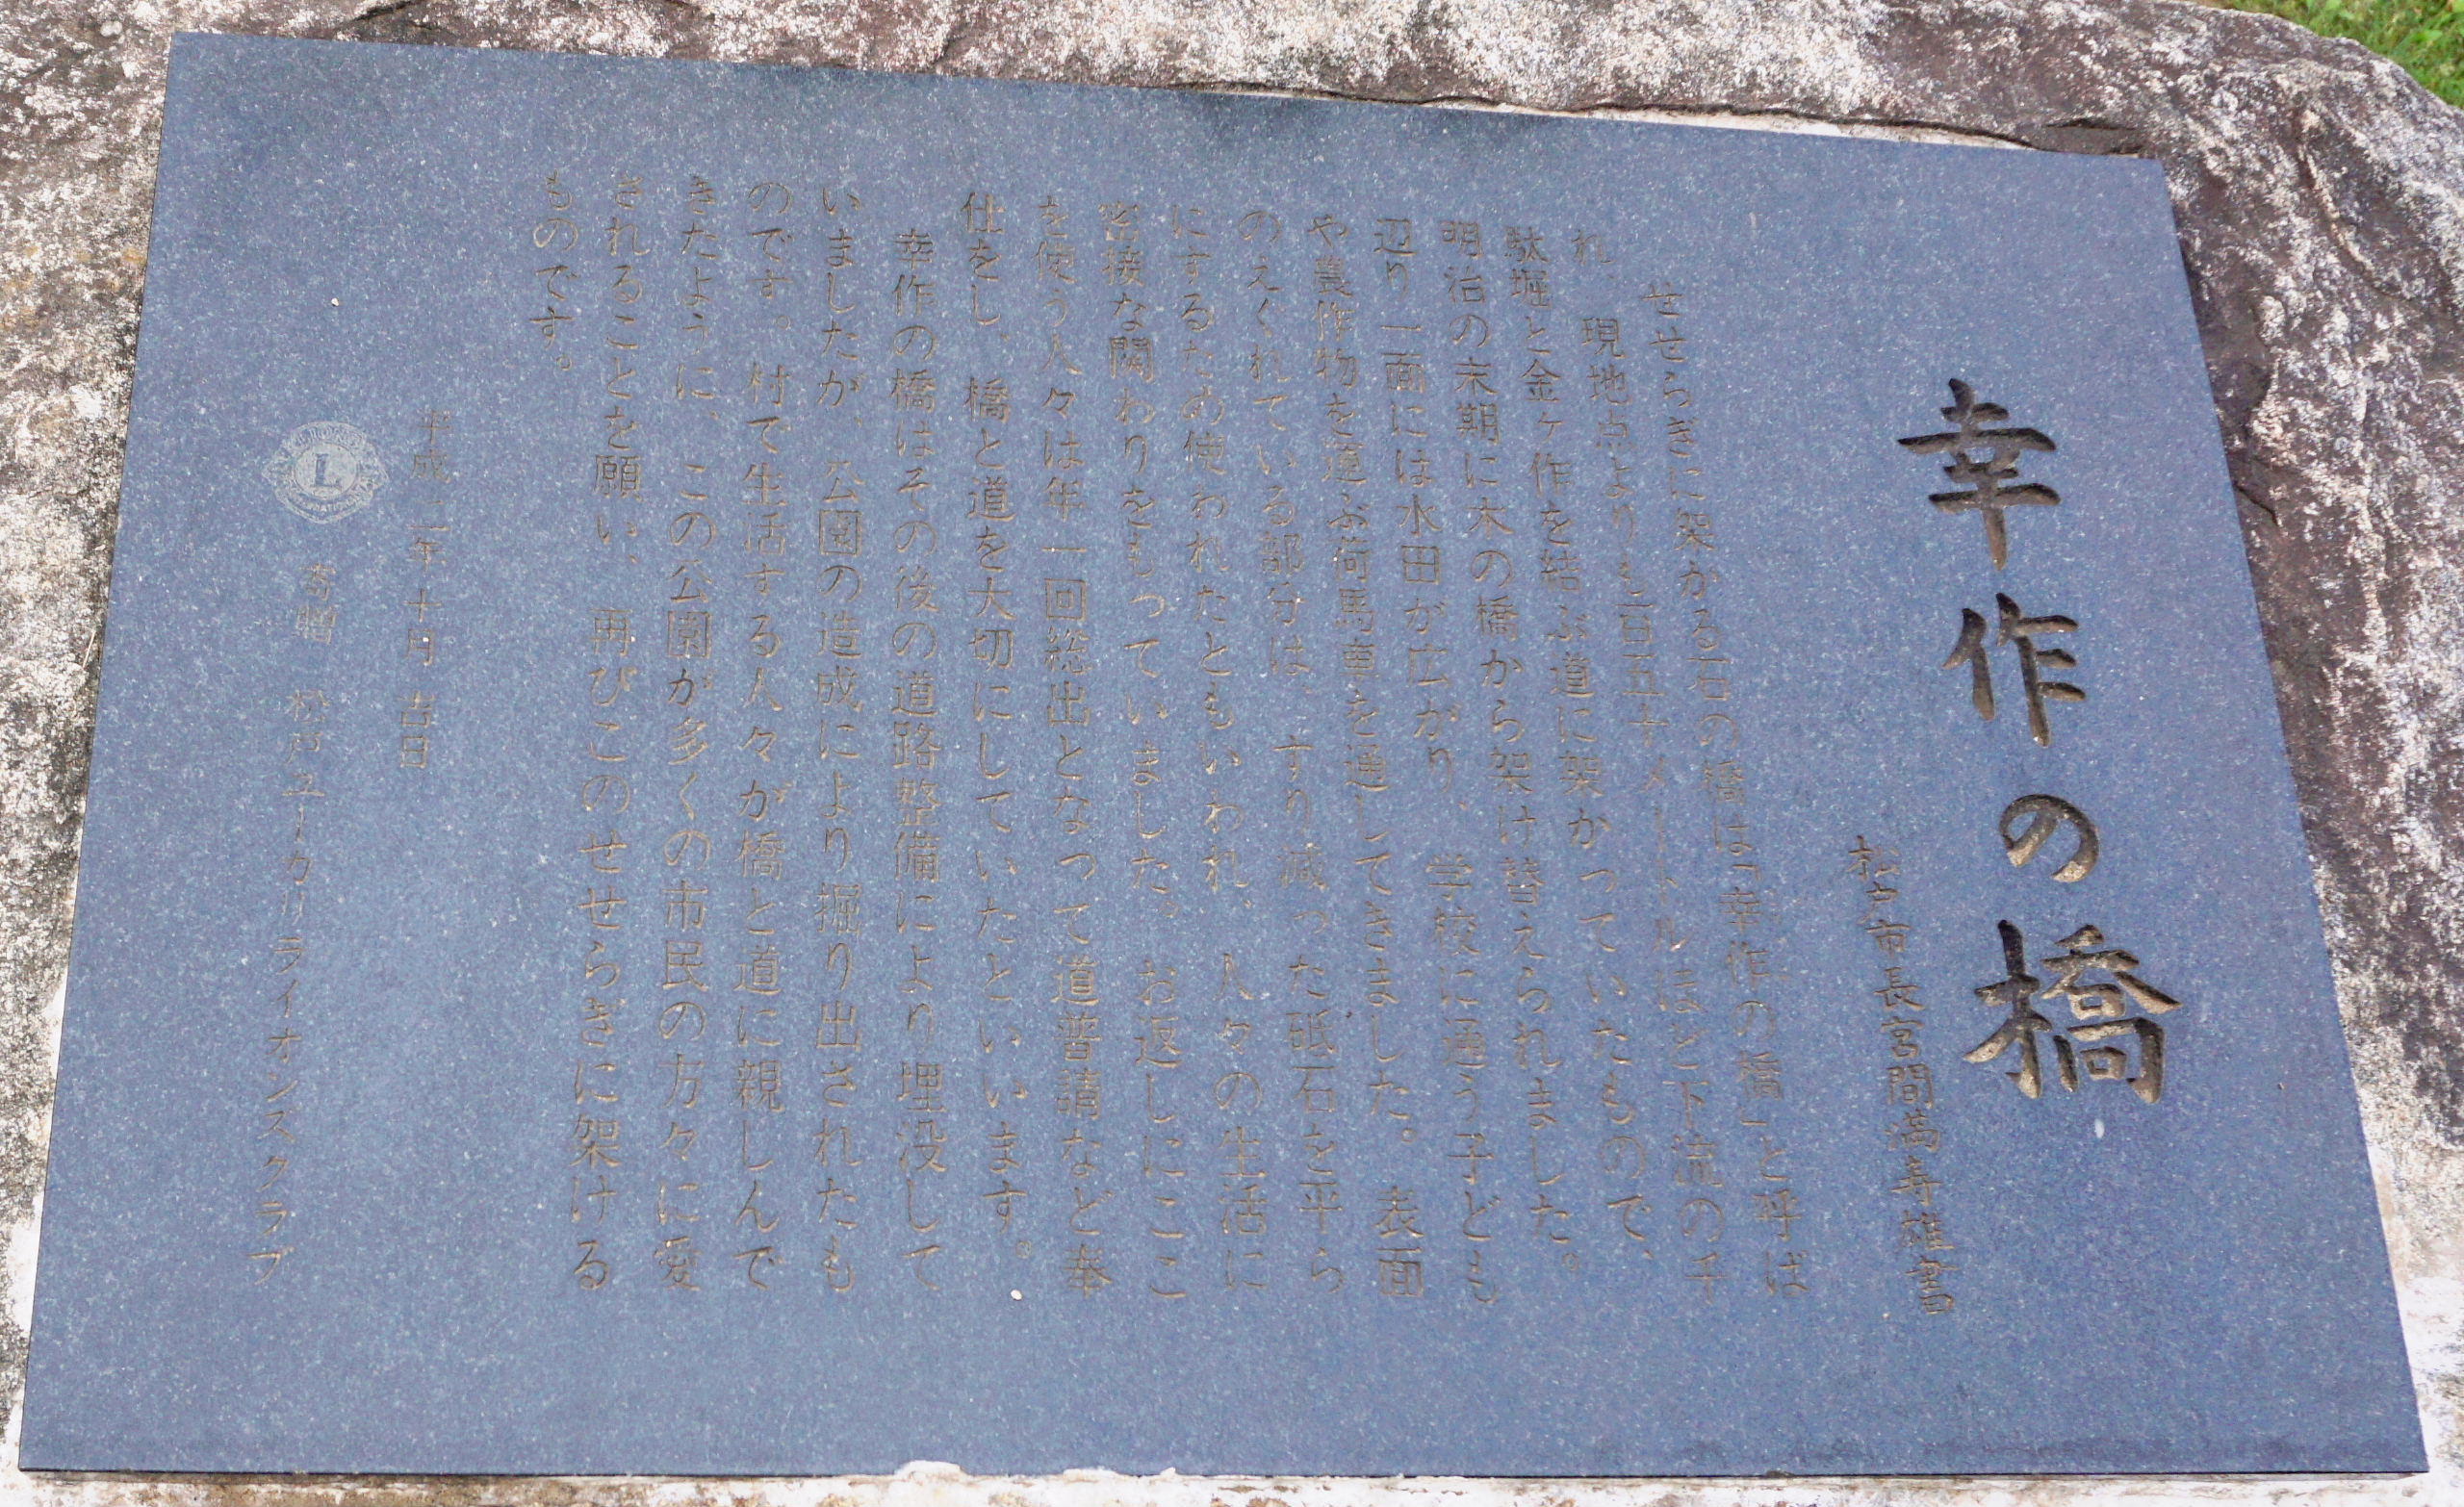 幸作の橋
松戸市長宮間満寿雄書
せせらぎに架かる石の橋は「幸作の橋」と呼ば
れ、現地点よりも百五十メートルほど下流の千
駄堀と金ヶ作を結ぶ道に架かっていたもので、
明治の末期に木の橋から架け替えられました。
辺り一面には水田が広がり、学校に通う子ども
や農作物を運ぶ荷馬車を通してきました。表面
のえぐれている部分は、すり減った砥石を平ら
にするため使われたともいわれ、人々の生活に
密接な関わりをもっていました。お返しにここ
を使う人々は年一回総出となって道普請など奉
仕をし、橋と道を大切にしていたといいます。
幸作の橋はその後の道路整備により埋没して
いましたが、公園の造成により掘り出されたも
のです。村で生活する人々が橋と道に親しんで
きたように、この公園が多くの市民の方々に愛
されることを願い、再びこのせせらぎに架ける
ものです。
平成二年十月 吉日
L
寄贈 松戸ユーカリライオンズクラブ